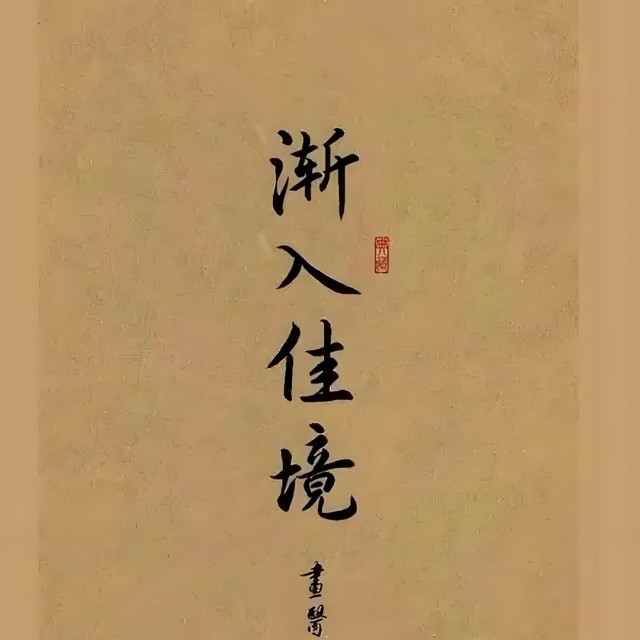 渐入佳境
畫醫